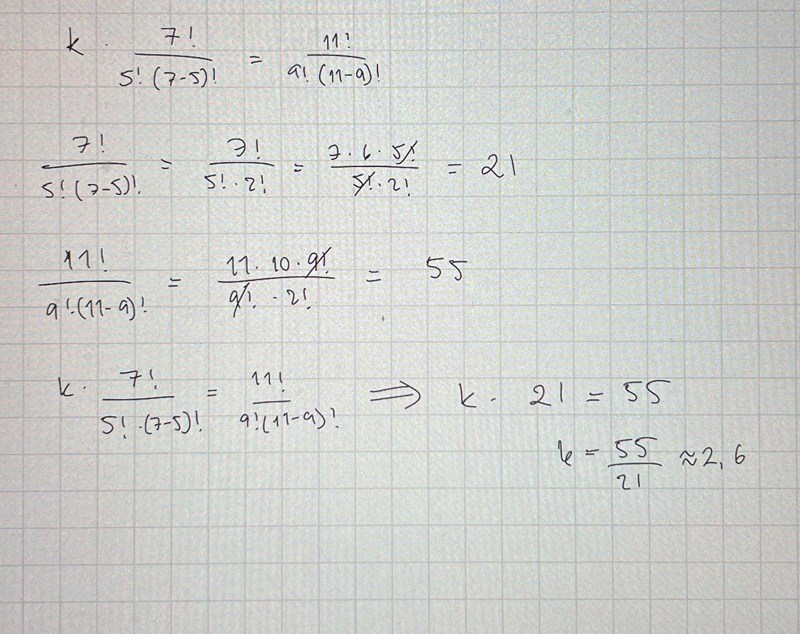 k · 7! / 5! (7-5)! = 11! / 9! (11-9)!
7! / 5! (7-5)! = 7! / 5! · 2! = 7 · 6 · 5! / 5! · 2! = 21
11! / 9! · (11-9)! = 11 · 10 · 9! / 9! · 2! = 55
k · 7! / 5! · (7-5)! = 11! / 9! (11-9)! ⟹ k · 21 = 55
k = 55 / 21 ≈ 2,6